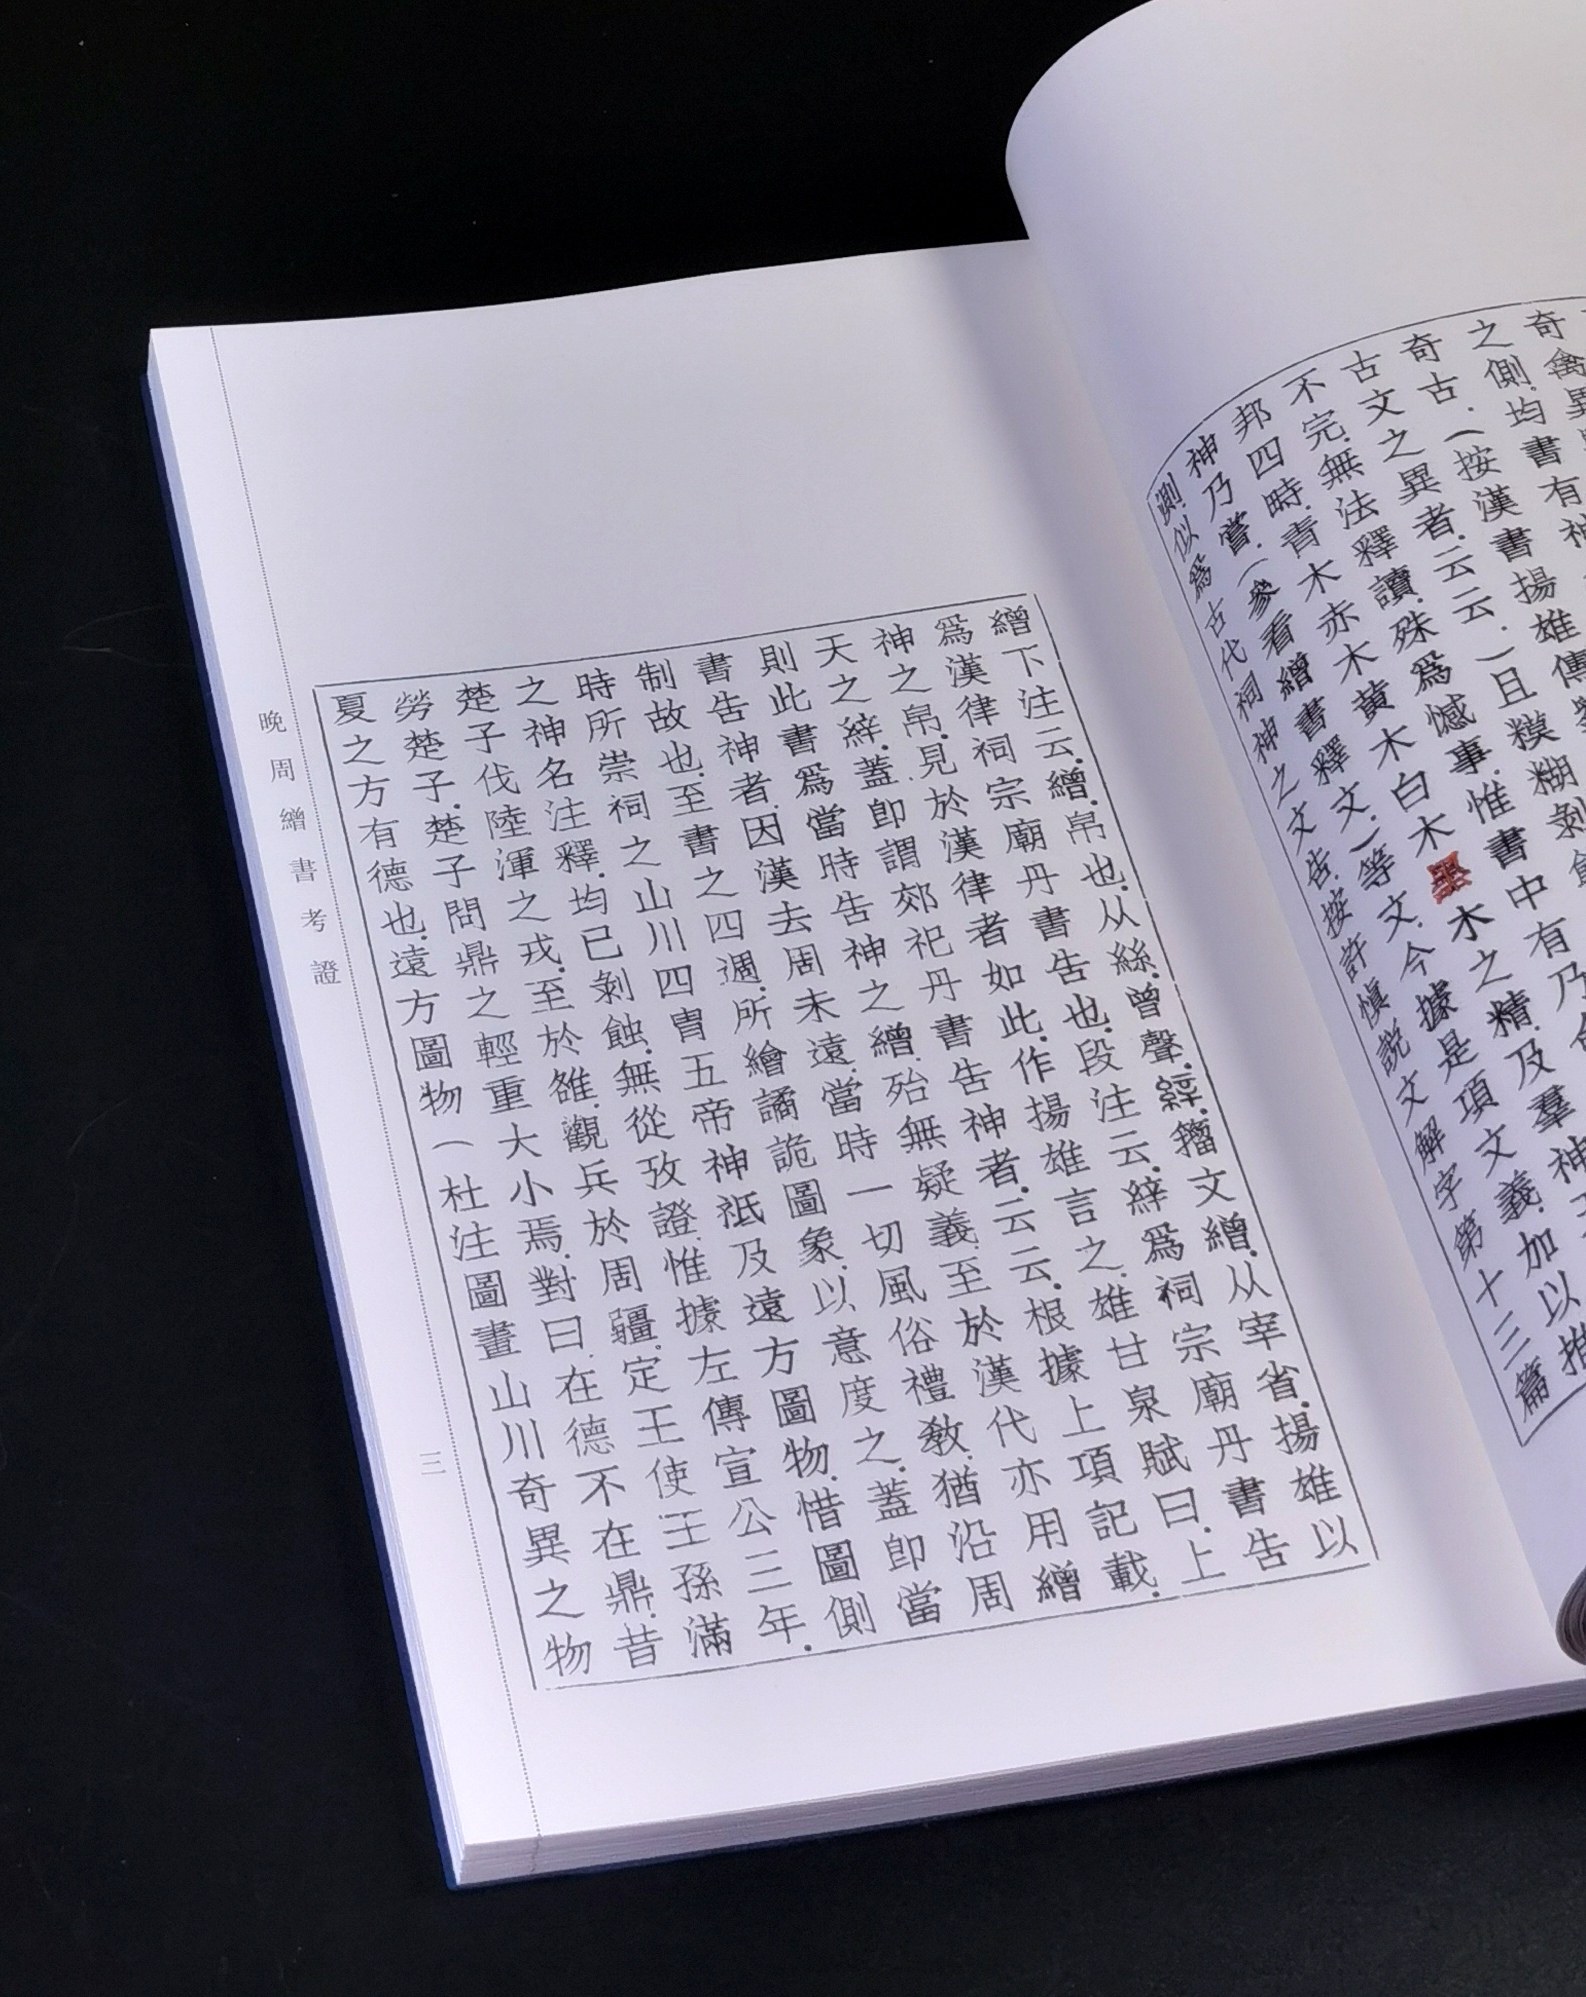 奇禽異
之側.均書有神
奇古.（按漢書揚雄傳
古文之異者.云云.）且糢糊剝
不完.無法釋讀.殊爲憾事.惟書中有乃
邦四時.青木赤木黄木白木墨木之精.及羣神
神乃嘗.（參看繒書釋文.）等文.今據是項文義.加以推
測.似爲古代祠神之文告.按許慎說文解字第十三篇
繒下注云.繒.帛也.从絲.曾聲.縡.籀文繒.从宰省.揚雄以
爲漢律祠宗廟丹書告也.段注云.縡爲祠宗廟丹書告
神之帛.見於漢律者如此.作揚雄言之.雄甘泉賦曰.上
天之縡.蓋即謂郊祀丹書告神者.云云.根據上項記載.
則此書爲當時告神之繒.殆無疑義.至於漢代亦用繒
書告神者.因漢去周未遠.當時一切風俗禮教.猶沿周
制故也.至書之四週.所繪譎詭圖象.以意度之.蓋即當
時所崇祠之山川四胄五帝神祇及遠方圖物.惜圖側
之神名注釋.均已剝蝕.無從攷證.惟據左傳宣公三年.
楚子伐陸渾之戎.至於雒.觀兵於周疆.定王使王孫滿
勞楚子.楚子問鼎之輕重大小焉.對曰.在德不在鼎.昔
夏之方有德也.遠方圖物（杜注圖畫山川奇異之物
晚周繒書考證
三